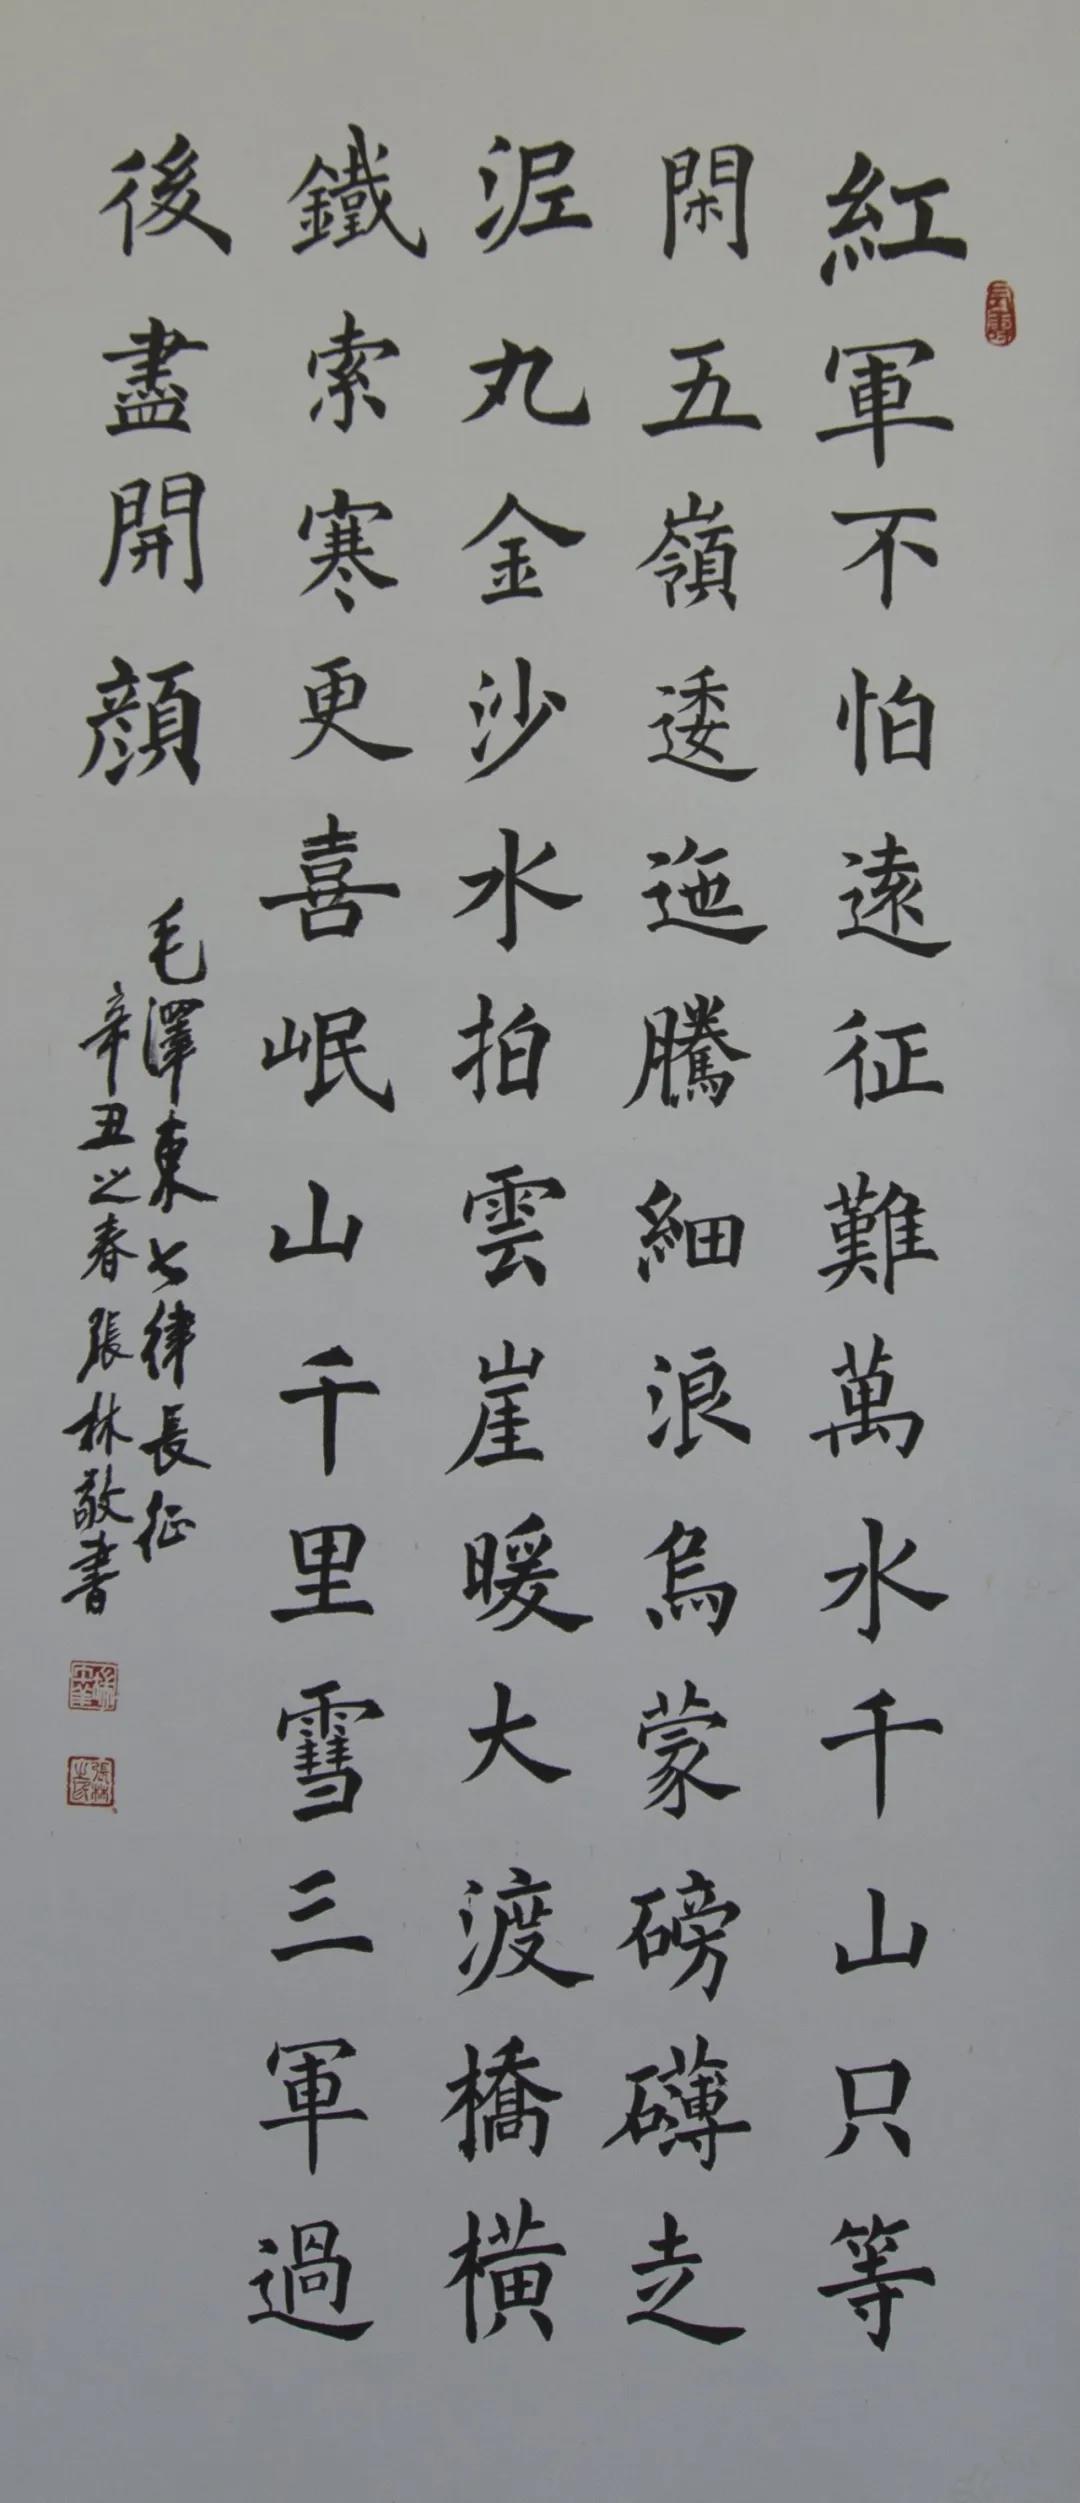 紅軍不怕遠征難萬水千山只等
閑五嶺逶迤騰細浪烏蒙磅礴走
泥丸金沙水拍雲崖暖大渡橋橫
鐵索寒更喜岷山千里雪三軍過
後盡開顏
毛澤東七律長征
辛丑之春張林敬書
張林